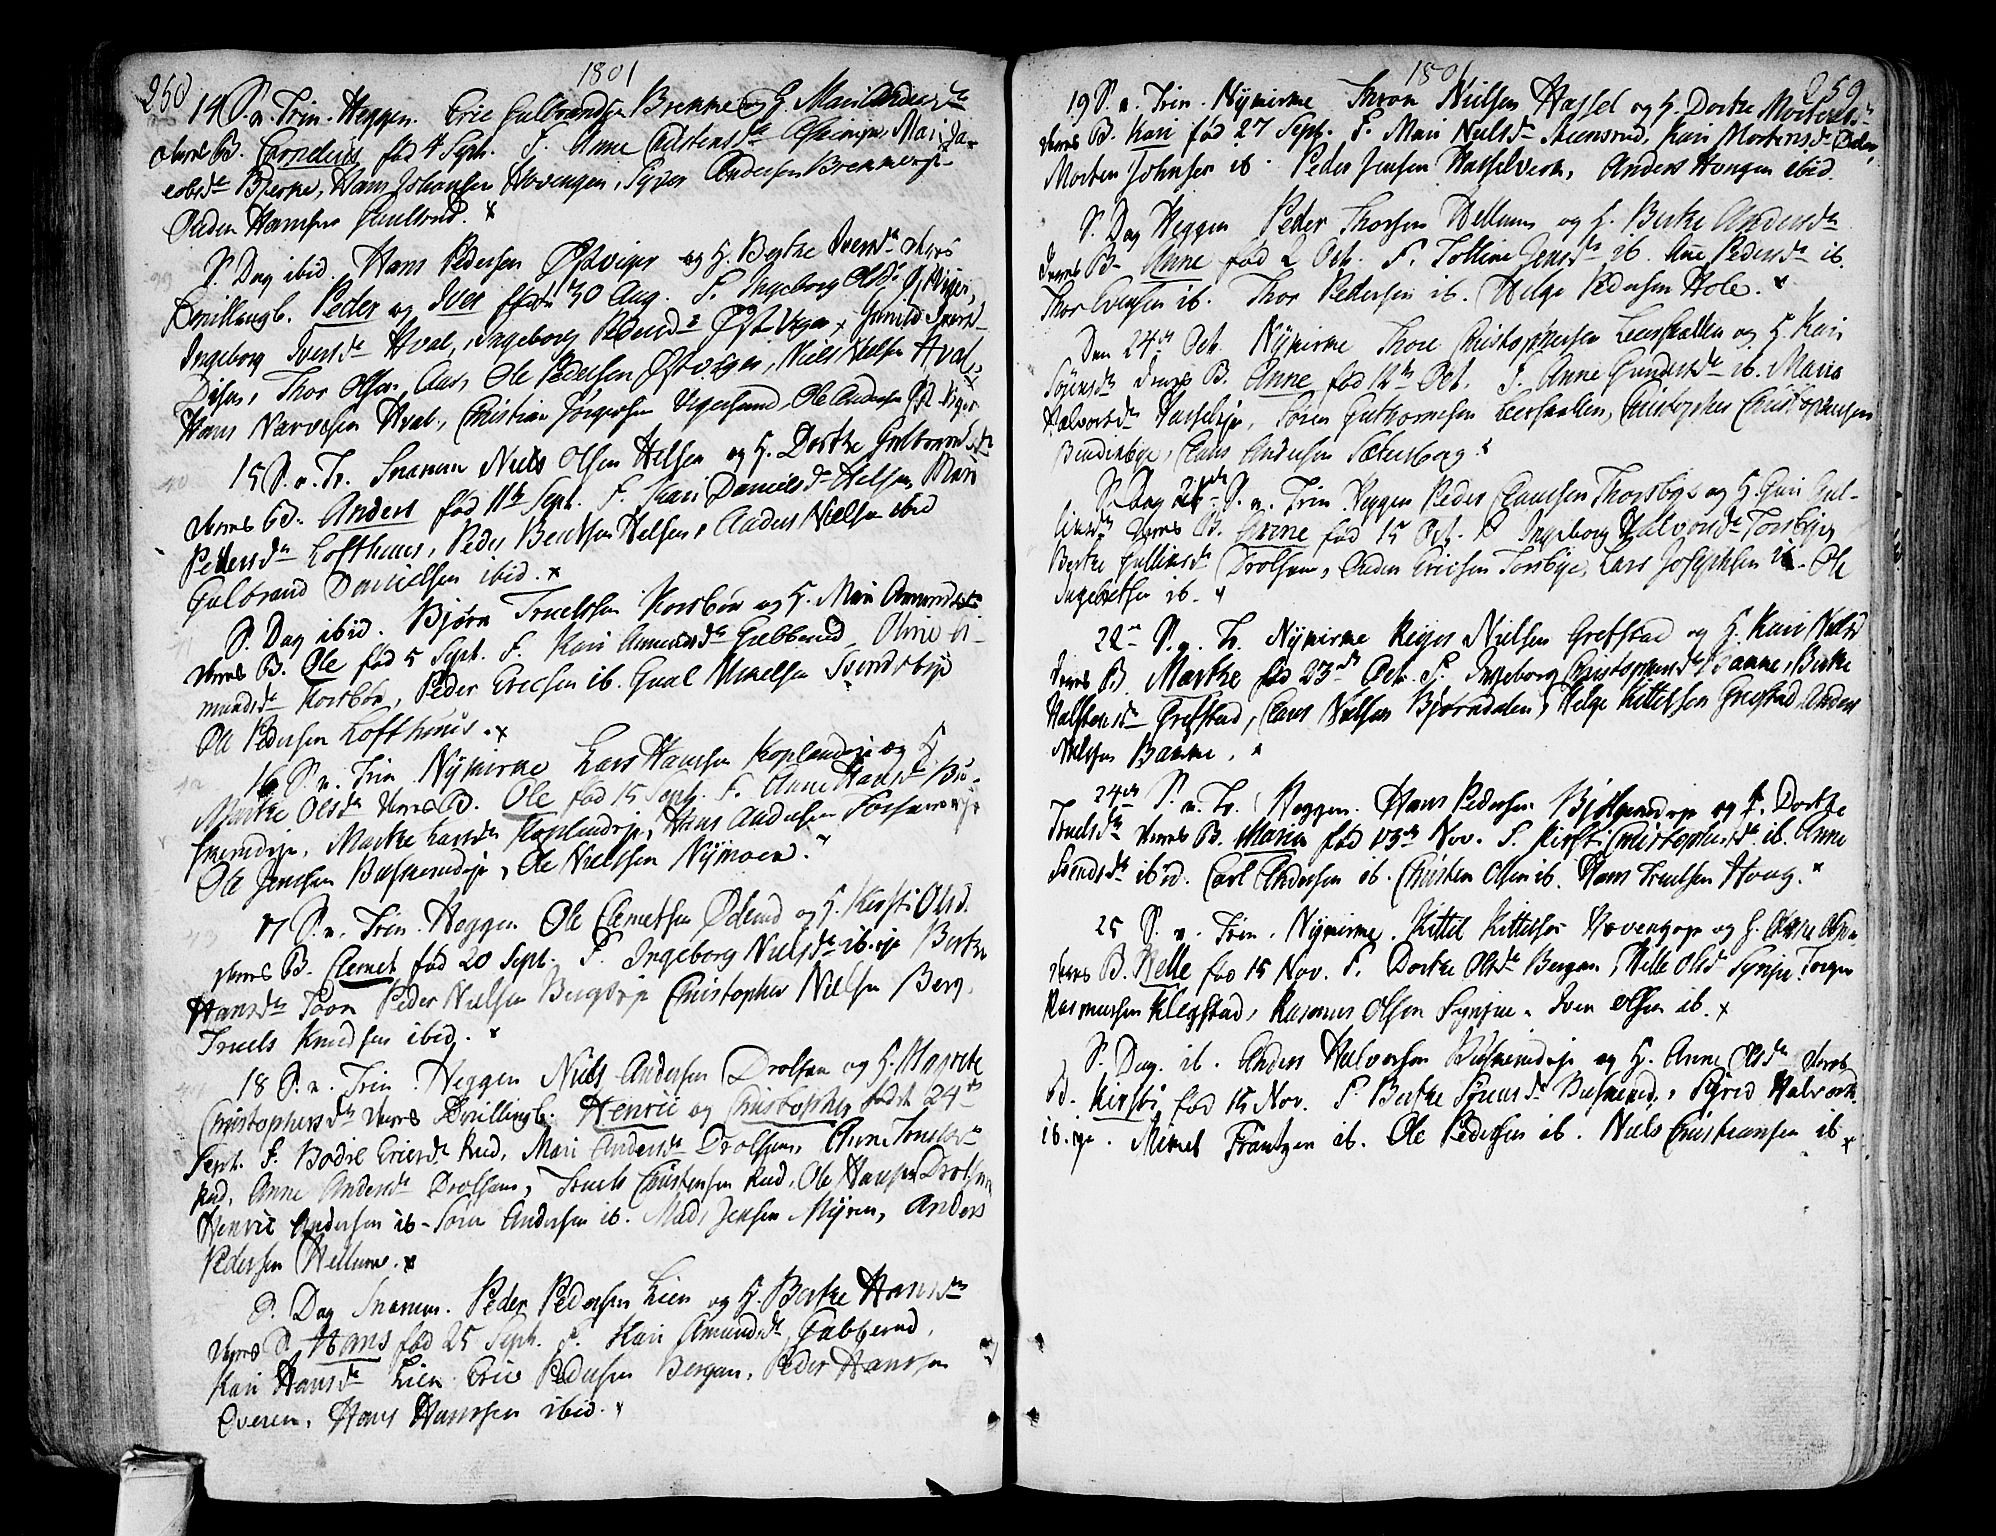 1801
250
14 S. n. Trin. Heggen. Eric Gulbrandsen Bremme og H. Mari Andersdr
deres B. Cornelius fød 4 Sept. F. Anne Mari Ja-
cobsdr Bjerke, Hans Johansen Hovengen, Syver Andersen Bremmerje
Auden Hansen
S. Dag ibid. Hans Pedersen Østviger og H. Berthe Iversdr deres
Tvillingb. Peder og Iver fødte 30 Aug. F. Ingeborg Olsdr Øst Viger,
Ingeborg Iversdr Hval, Ingeborg Pedersdr Østviger, Gunild Iversdr
Disen, Thor Olsen Aas, Ole Pedersen Østviger, Niels Nielsen Hval,
Hans Narvesen Hval, Christian Jørgensen Ole Andersen Øst Viger
15 S. n. Tr. Snarum Niels Olsen Helsen og H. Dorthe Gulbrandsdr
deres B. Anders fød 11te Sept. F. Kari Danielsdr Helsen Mari
Pedersdr Lofthuus, Peder Bentsen Helsen, Anders Nielsen ibid
Gulbrand Danielsen ibid. x
S. Dag ibid. Bjørn Truelssen Korsbøn og H. Mari Amundsdr
deres B. Ole fød 5 Sept. F. Kari Amundsdr Gubberud, Oline A-
mundsdr Korsbøn, Peder Ericsen ib. Svendsbye
Ole Pedersen Lofthuus. x
16 S. n. Trin Nykirke Lars Hansen Koplandeje og H.
Marthe Olsdr deres B. Ole fød 15 Sept. F. Anne Hansdr Bu-
skerudeje, Marthe Larsdr Koplandeje, Hans Andersen
Ole Jensen Buskerudeje, Ole Nielssen Nymoen. x
17 S. n. Trin. Heggen Ole Clemetsen Ødeud og H. Kirsti Olsd.
deres B. Clemet fød 20 Sept. F. Ingeborg Nielsdr ib. eje Berthe
Hansdr Toon Peder Nielsen Bergseje Christopher Nielsen Berg.
Truels Knudsen ibid. x
18 S. n. Trin. Heggen Niels Andersen Drolsum og H. Magrete
Christophersdr deres Tvillingb. Henric og Christopher fødte 24de
Sept. F. Bodil Ericsdr Rud, Mari Andersdr Drolsum, Anne Truelsdr
Rud, Anne Andersdr Drolsum, Truels Christensen Rud, Ole Hansen Drolsum
Henric Andersen ib. Søren Andersen ib. Mads Jensen Myren, Anders
Pedersen Hellum. x
S. Dag Snarum. Peder Pedersen Lien og H. Berthe Hansdr
deres B. Hans fød 25 Sept. F. Kari Amundsdr Gubberud,
Kari Hansdr Lien Eric Pedersen Bergan, Peder Hanssen
Overen, Hans Hanssen ibid. x
1801
259
19 S. n. Trin. Nykirke Thron Nielsen Hassel og H. Dorthe Mortensdr
deres B. Kari fød 27 Sept. F. Mari Nielsdr Skensrud, Kari Mortensdr Dalen,
Morten Johnsen ib. Peder Jensen Hasselverk, Anders Hongen ibid.
S. Dag Heggen Peder Thorsen Hellum og H. Berthe Andersdr
deres B. Anne fød 2 Oct. F. Tolline Jensdr ib. Ane Pedersdr ib.
Thor Evensen ib. Thor Pedersen ib. Helge Pedersen Hole. x
Den 24de Oct. Nykirke Thore Christophersen Leerskallen og H. Kari
Sørensdr deres B. Anne fød 12te Oct. F. Anne Gundersdr ib. Maria
Halvorsdr Hasseleje, Søren Guthormsen Leerskallen, Christopher Christophersen
Bendikbye, Claus Andersen Sætersberg. x
S. Dag 21de S. n. Trin. Heggen Peder Claussen Thorsbye og H. Guri Gul-
linsdr deres B. Anne fød 15 Oct. F. Ingeborg Halvorsdr Torsbye,
Berthe Gullinsdr Drolsum, Auden Ericsen Torsbye, Lars Josephsen ib. Ole
Ingebretsen ib. x
22de S. n. Tr. Nykirke Reyer Nielsen Grefstad og H. Kari Nielsd
deres B. Marthe fød 23de Oct. F. Ingeborg Christophersdr Bamme, Berthe
Halstensdr Grefstad, Claus Nielsen Bjørndalen, Helge Kittelsen Grefstad, Anders
Nielsen Bamme. x
24de S. n. Tr. Heggen. Hans Pedersen og H. Dorthe
Truelsdr deres B. Maria fød 13de Nov. F. Kirsti Christophersdr ib. Anne
Svendsdr ibid. Carl Andersen ib. Christen Olsen ib. Hans Truelsen Haag. x
25 S. n. Trin. Nykirke. Kittel Kittelsen Hovengeje og H.
deres B. Helle fød 15 Nov. F. Dorthe Olsdr Bergan, Helle Olsd Synjue Torgen
Rasmussen Klegstad, Rasmus Olsen Synjue, Iver Olsen ib. x
S. Dag ib. Anders Halvorsen Buskerudeje og H. Anne Olsdr deres
B. Kirsti fød 15 Nov. F. Berthe Sørensdr Buskerud, Sigrid Halvorsd.
ib. eje. Mikel Frantzen ib. Ole Pedersen ib. Niels Christiansen ib x